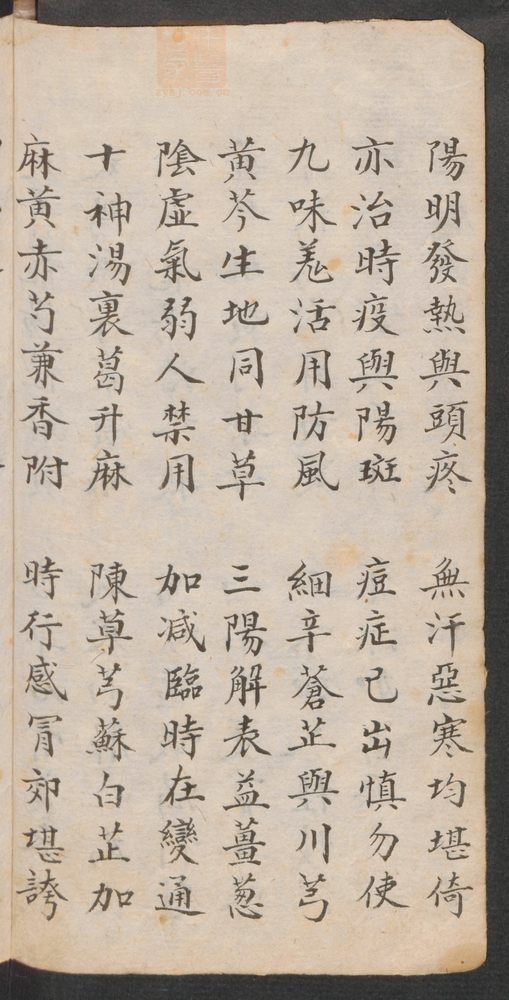 陽明發熱與頭疼 無汗惡寒均堪倚
亦治時疫與陽斑 痘症已出慎勿使
九味羗活用防風 細辛蒼芷與川芎
黃芩生地同甘草 三陽解表益薑葱
陰虛氣弱人禁用 加減臨時在變通
十神湯裏葛升麻 陳草芎蘇白芷加
麻黃赤芍兼香附 時行感冐郊堪誇